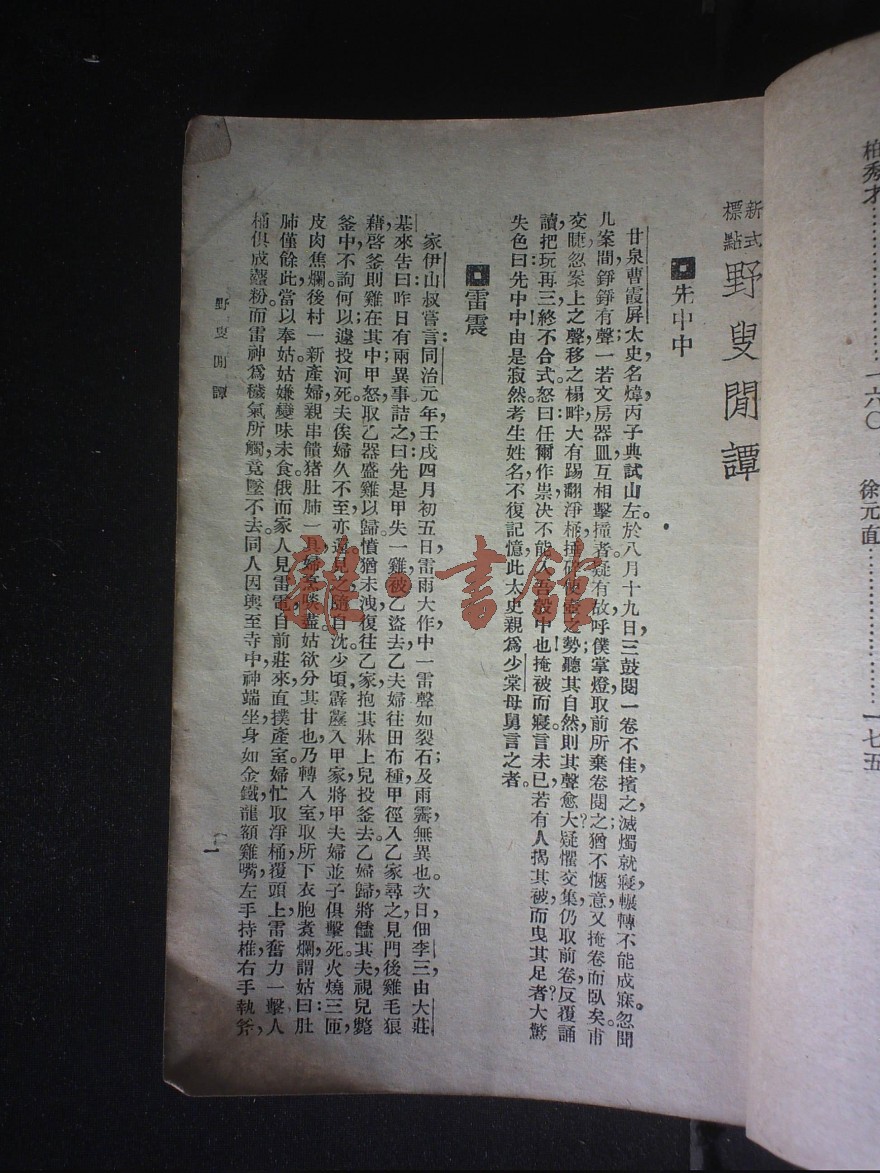 柏秀才……………………一六〇
徐元直……………………一七五
新式
標點
野叟閒譚
先中中
甘泉曹霞屏太史名煒，丙子典試山左。於八月十九日三鼓閱一卷不佳，擯之；滅燭就寢，輾轉不能成寐。忽聞
几案間錚錚有聲，一若文房器皿互相擊撞者，疑有故；呼僕掌燈，取前所棄卷閱之，猶不愜意，又掩卷而臥矣。甫
交睫，忽案上之聲，移之榻畔，大有踢翻淨桶，捶碎便壺之勢；聽其自然，則其聲愈大。疑懼交集，仍取前卷反覆誦
讀，把玩再三，終不合式。怒曰：任爾作祟，決不能入吾彀中也！掩被而寢。言未已，若有人揭其被，而曳其足者。大驚
失色曰：先中中！由是寂然。考生姓名，不復記憶，此太史親爲少棠母舅言之者。
雷震
家伊山叔嘗言：同治元年，壬戌四月初五日，雷雨大作，中一雷聲如裂石；及雨霽，無異也。次日佃李三，由大莊
基來告曰：昨日有兩異事，詰之，曰：先是甲失一雞，被乙盜去；乙夫婦往田布種，甲徑入乙家尋之，見門後雞毛狼
藉，啓釜則雞在其中；甲怒，取乙器盛雞以歸，憤猶未洩，復往乙家，抱其牀上兒投釜去。乙婦歸，將饁其夫，視兒斃
釜中，不詢何以，遽投河死。夫俟婦久不至，亦還見之，隨自沈。少頃，霹靂入甲家，將甲夫婦並子俱擊死。火燒三匝，
皮肉焦爛。後村一新產婦，親串饋猪肚肺一具，婦烹啖盡。姑欲分其甘也，乃轉入室，取所下衣胞煑爛，謂姑曰：肚
肺僅餘此，當以奉姑，姑嫌變味未食。俄而家人見雷電自前莊來，直撲產室；婦忙取淨桶覆頭上，雷奮力一擊，人
桶俱成虀粉。而雷神爲穢氣所觸，竟墜不去。同人因輿至寺中，神端坐，身如金鐵，龍額雞嘴，左手持椎，右手執斧，
野叟閒譚
一
雜·書館